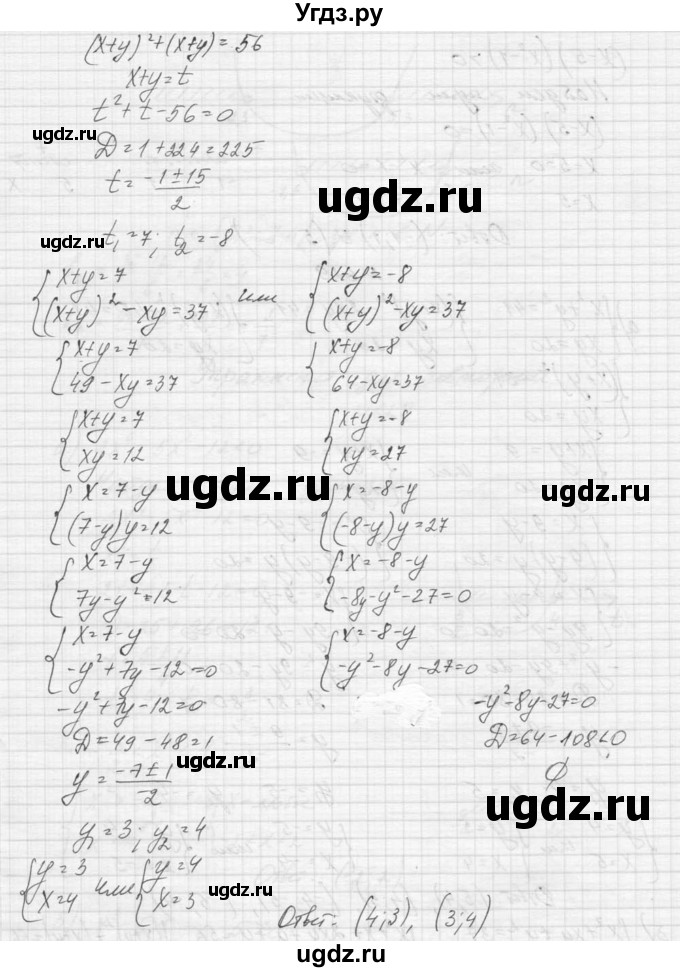 Угдз.ру
(x+y)²+(x+y)=56
x+y=t
t²+t-56=0
ugdz.ru
D=1+224=225
t=-1±15/2
ugdz.ru
ugdz.ru
t₁=7; t₂=-8
{x+y=7
(x+y)²-xy=37
или
{x+y=-8
(x+y)²-xy=37
{x+y=7
49-xy=37
{x+y=-8
64-xy=37
{x+y=7
xy=12
{x+y=-8
xy=27
ugdz.ru
ugdz.ru
{x=7-y
(7-y)y=12
{x=-8-y
(-8-y)y=27
{x=7-y
7y-y²=12
{x=-8-y
-8y-y²-27=0
{x=7-y
-y²+7y-12=0
{x=-8-y
-y²-8y-27=0
-y²+7y-12=0
-y²-8y-27=0
D=49-48=1
D=64-108<0
ugdz.ru
y=-7±1/-2
∅
ugdz.ru
y₁=3; y₂=4
{y=3
x=4
или
{y=4
x=3
ugdz.ru
Ответ: (4;3), (3;4)
ugdz.ru
ugdz.ru